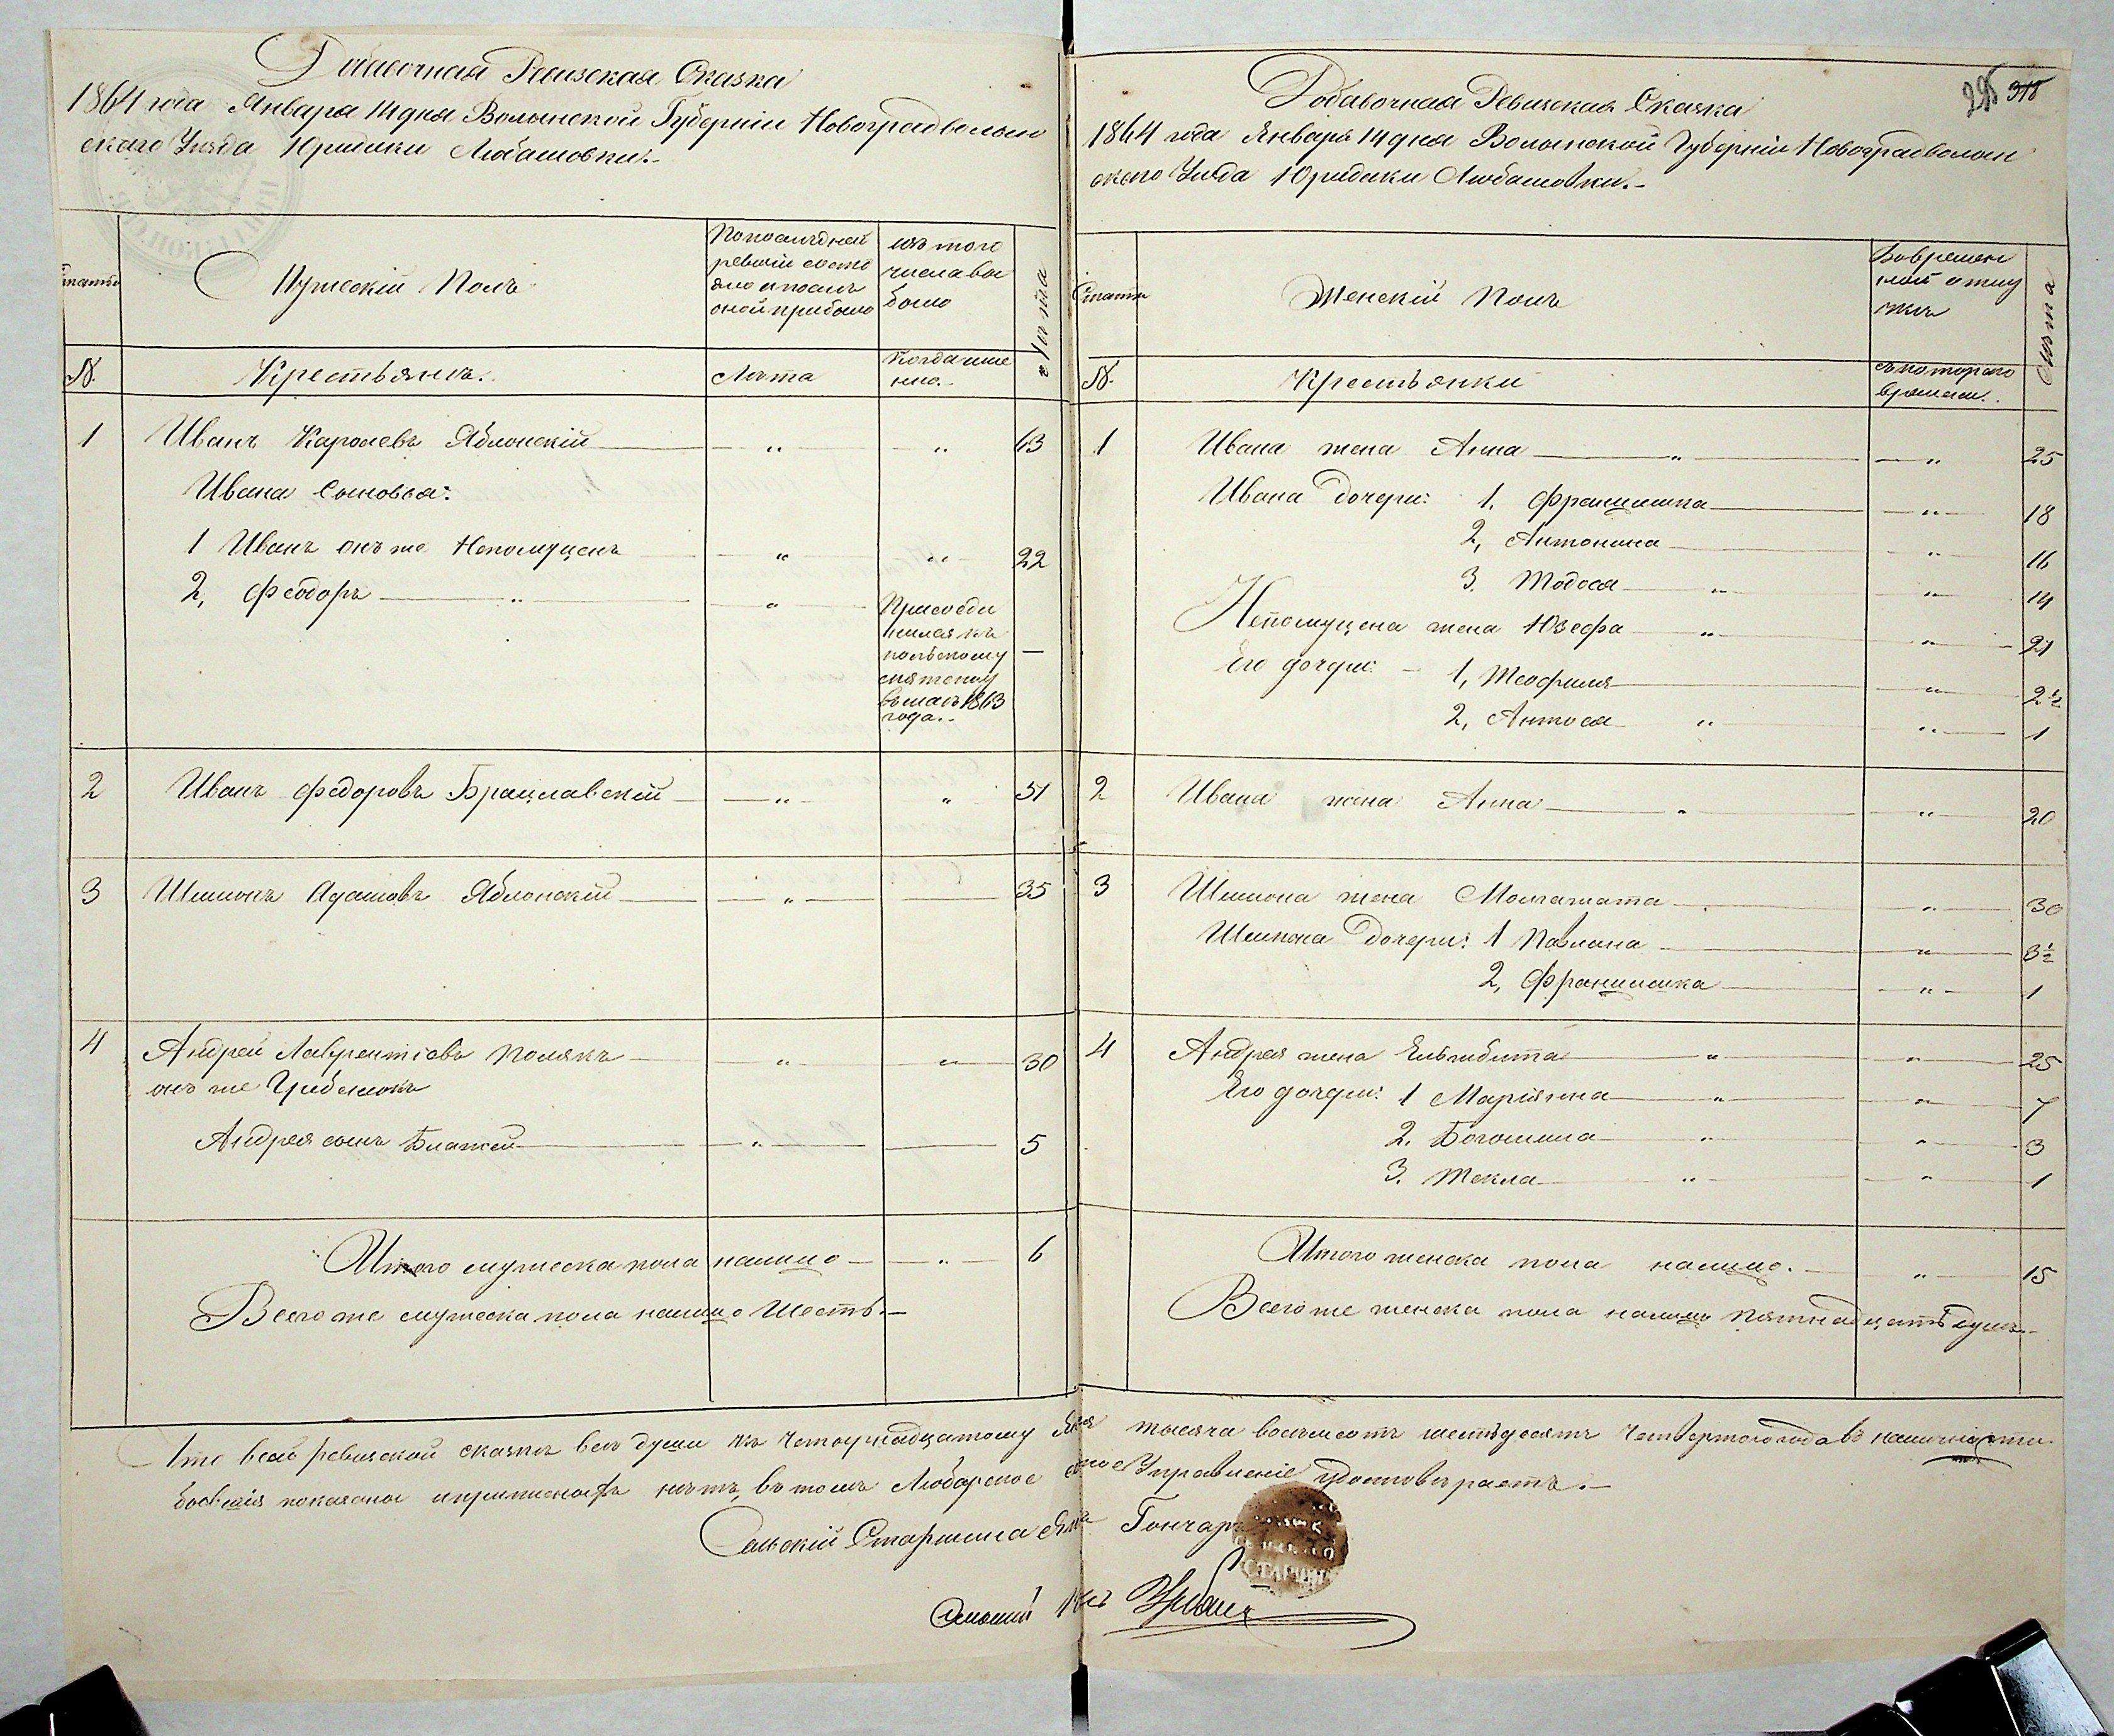 Добавочная Ревизская Сказка
1864 года Января 14 дня Волынской Губерніи Новоградволын
скаго Уѣзда Юридики Любашовки.-
Статьи
Мужескій Полъ
По послѣдней
ревизіи состо
яло и послѣ
оной прибыло
изъ того
числа вы
было
Лѣта
№.
Крестьянъ.
Лѣта
Когда име
нно.-
1 Иванъ Каролевъ Яблонскій " " 63
Ивана Сыновья:
1 Иванъ онъ же Непомуценъ " " 22
2, Федоръ " "
Присоеди
нился къ
польскому
мятежу
въ маѣ 1863
года.-
2 Иванъ Федоровъ Брацлавскій " " 51
3 Шимонъ Адамовъ Яблонскій " 35
4 Андрей Лаврентіевъ Полякъ " " 30
онъ же Грибѣнюкъ
Андрея сынъ Блажей " 5
Итого мужеска пола налицо " 6
Всего же мужеска пола налицо Шесть.-
295 318
Добавочная Ревизская Сказка
1864 года Января 14 дня Волынской Губерніи Новоградволын
скаго Уѣзда Юридики Любашовки.-
Статьи
Женскій Полъ
Во времен
ной отлу
чкѣ
Лѣта
№.
Крестьянки
съ котораго
времени.
1 Ивана жена Анна " " 25
Ивана дочери: 1. Францишка " 18
2, Антонина " 16
3. Тодося " " 14
Непомуцена жена Юзефа " " 21
Его дочери: 1, Теофиля " 2½
2, Антося " " 1
2 Ивана жена Анна " " 20
3 Шимона жена Малгажата " 30
Шимона дочери: 1 Павлина " 3½
2, Францишка " 1
4 Андрея жена Ельжбита " " 25
Его дочери: 1 Маріянна " " 7
2. Богомила " " 3
3. Текла " " 1
Итого женска пола налицо. " 15
Всего же женска пола налицо пятнадцать душъ.-
Что въ сей ревизской сказкѣ всѣ души къ Четырнадцатому тысяча восемсотъ шестьдесятъ Четвертого года въ наличности
бывшія показаны и прописныхъ нѣтъ, въ томъ Любарское Управленіе удостовѣряетъ.-
Сельскій Старшина Гончаръ
СТАРОШ
Сельскій